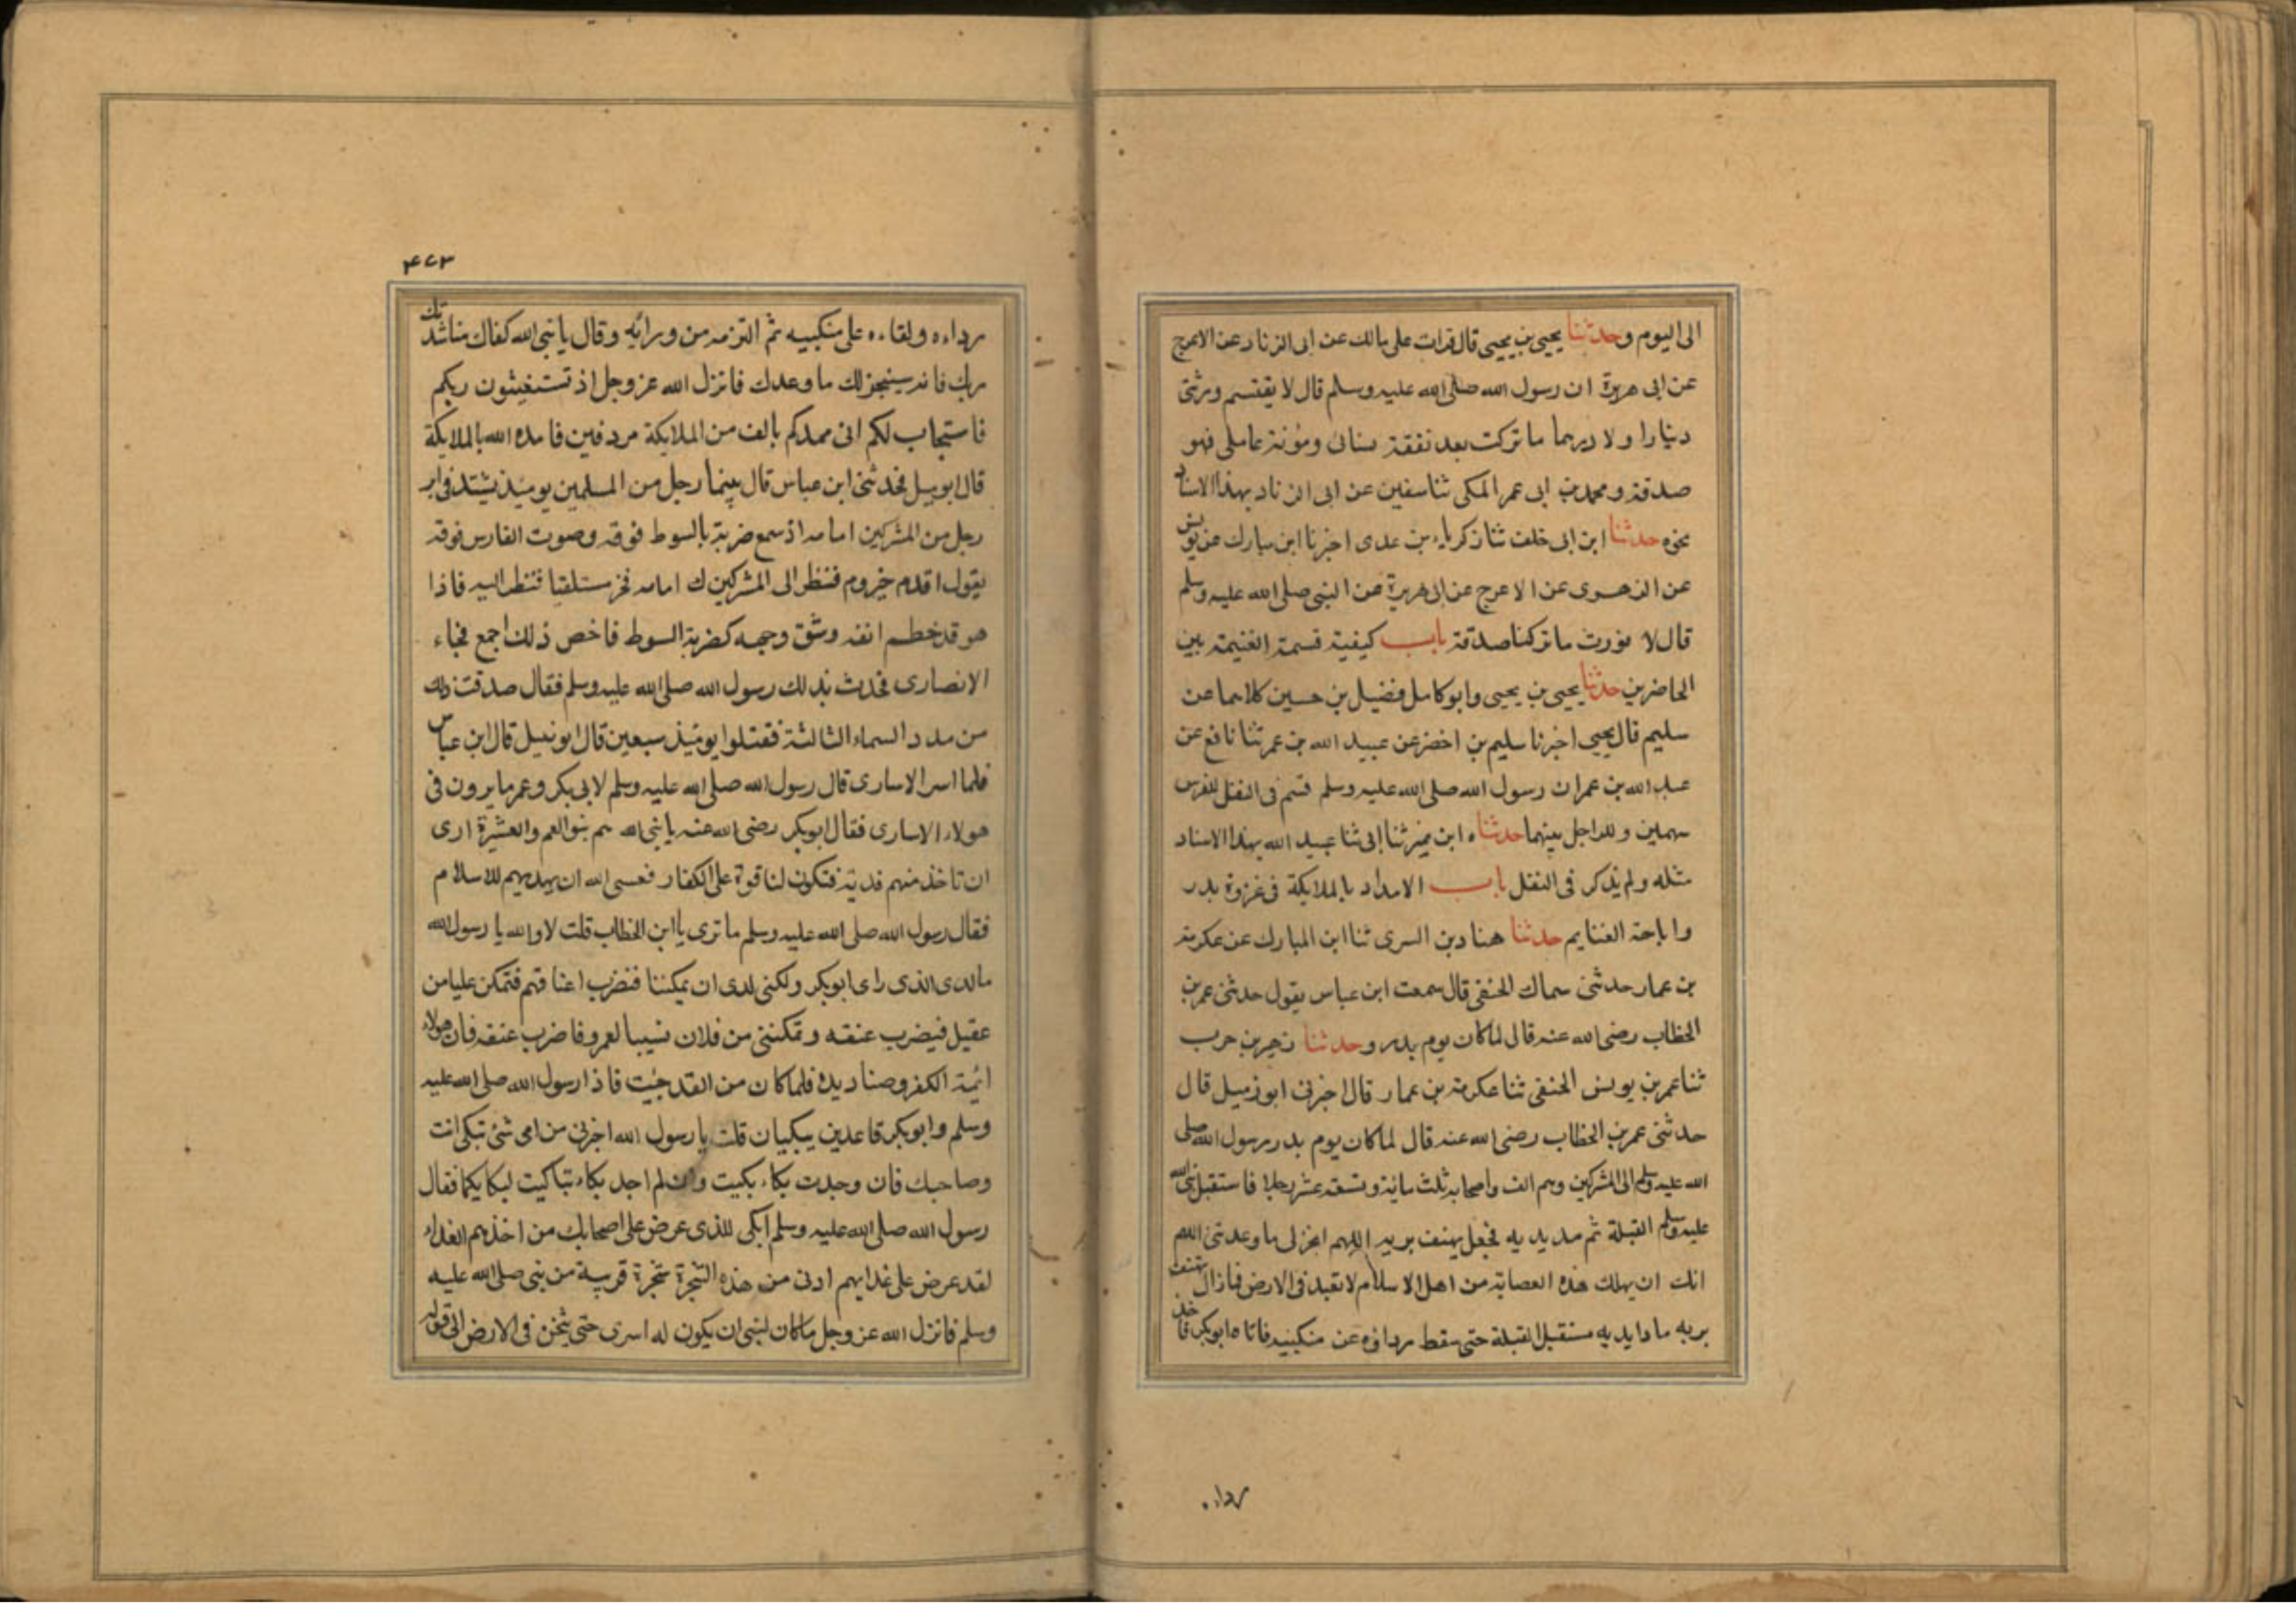 الى اليوم وحدثنا يحيى بن يحيى قال قرات على مالك عن ابى الزناد عن الاعرج
عن ابى هريرة ان رسول الله صلى الله عليه وسلم قال لا يقتسم ورثتى
دينارا ولا درهما ما تركت بعد نفقة نسائى ومؤنة عاملى فهو
صدقة ومحمد بن ابى عمر المكى ثنا سفين عن ابى الزناد بهذا الاسناد
نحوه حدثنا ابن ابى خلف ثنا زكرياء بن عدى اخبرنا ابن مبارك عن يونس
عن الزهوى عن الاعرج عن ابى هريرة عن النبى صلى الله عليه وسلم
قال لا نورث ما تركنا صدقة باب كيفية قسمة الغنيمة بين
الحاضرين حدثنا يحيى بن يحيى وابو كامل فضيل بن حسين كلاهما عن
سليم قال يحيى اخبرنا سليم بن اخضر عن عبيد الله بن عمر ثنا نافع عن
عبد الله بن عمر ان رسول الله صلى الله عليه وسلم قسم فى النفل للفرس
سهمين وللراجل بينهما حدثناه ابن نمير ثنا ابى ثنا عبيد الله بهذا الاسناد
مثله ولم يذكر فى النفل باب الامداد بالملايكة فى غزوة بدر
واباحة الغنايم حدثنا هناد بن السرى ثنا ابن المبارك عن عكرمة
بن عمار حدثنى سماك الحنفى قال سمعت ابن عباس يقول حدثنى عمر بن
الخطاب رضى الله عنه قال لما كان يوم بدر وحدثنا زهير بن حرب
ثنا عمر بن يونس الحنفى ثنا عكرمة بن عمار قال اخبرنى ابو زميل قال
حدثنى عمر بن الخطاب رضى الله عنه قال لما كان يوم بدر رسول الله صلى
الله عليه وسلم الى المشركين وهم الف واصحابه ثلث ماية وتسعة عشر رجلا فاستقبل نبى الله
عليه وسلم القبلة ثم مد يديه فجعل يهتف بربه اللهم انجز لى ما وعدتنى اللهم
انك ان يهلك هذه العصابة من اهل الاسلام لا تعبد فى الارض فما زال يهتف
بربه مادا يديه مستقبل القبلة حتى سقط رداؤه عن منكبيه فاتاه ابو بكر فاخذ
رداءه
٤٧٣
رداءه ولقاءه على منكبيه ثم التزمه من ورائه وقال يا نبى الله كفاك مناشدتك
ربك فانه سينجز لك ما وعدك فانزل الله عز وجل اذ تستغيثون ربكم
فاستجاب لكم انى ممدكم بالف من الملايكة مردفين فامده الله بالملايكة
قال ابو فحدثنى ابن عباس قال بينما رجل من المسلمين يوميذ يشتد فى اثر
رجل من المشركين امامه اذ سمع ضربة بالسوط فوقه وصوت الفارس فوقه
يقول اقدم خيروم فنظر الى المشركين ك امامه فخر مستلقيا فنظر اليه فاذا
هو قد خطم انفه وشق وجهه كضربة السوط فاخص ذلك اجمع فجاء
الانصارى فحدث بذلك رسول الله صلى الله عليه وسلم فقال صدقت ذلك
من مدد السماء الثالثة فقتلوا يوميذ سبعين قال ابو قال ابن عباس
فلما اسر الاسارى قال رسول الله صلى الله عليه وسلم لابى بكر وعمر ما يرون فى
هولاء الاسارى فقال ابو بكر رضى الله عنه يا نبى الله هم بنو العم والعشيرة ارى
ان تاخذ منهم فدية فتكون لنا قوة على الكفار فعسى الله ان يهديهم للاسلام
فقال رسول الله صلى الله عليه وسلم ما ترى يا ابن الخطاب قلت لا والله يا رسول الله
ما الذى راى ابو بكر ولكنى ان يمكننا فنضرب اعناقهم فتمكن عليا من
عقيل فيضرب عنقه وتمكننى من فلان نسيبا لعمر فاضرب عنقه فان هولاء
ائمة الكفر وصناديده فلما كان من الغد جيت فاذا رسول الله صلى الله عليه
وسلم وابو بكر قاعدين يبكيان قلت يا رسول الله اخبرنى من اى شئ تبكى انت
وصاحبك فان وجدت بكاء بكيت وان لم اجد بكاء تباكيت لبكايكما فقال
رسول الله صلى الله عليه وسلم ابكى للذى عرض على اصحابك من اخذهم الفداء
لقد عرض على عذابهم ادنى من هذه الشجرة شجرة قريبة من نبى صلى الله عليه
وسلم فانزل الله عز وجل ما كان لنبى ان يكون له اسرى حتى يثخن فى الارض الى قوله